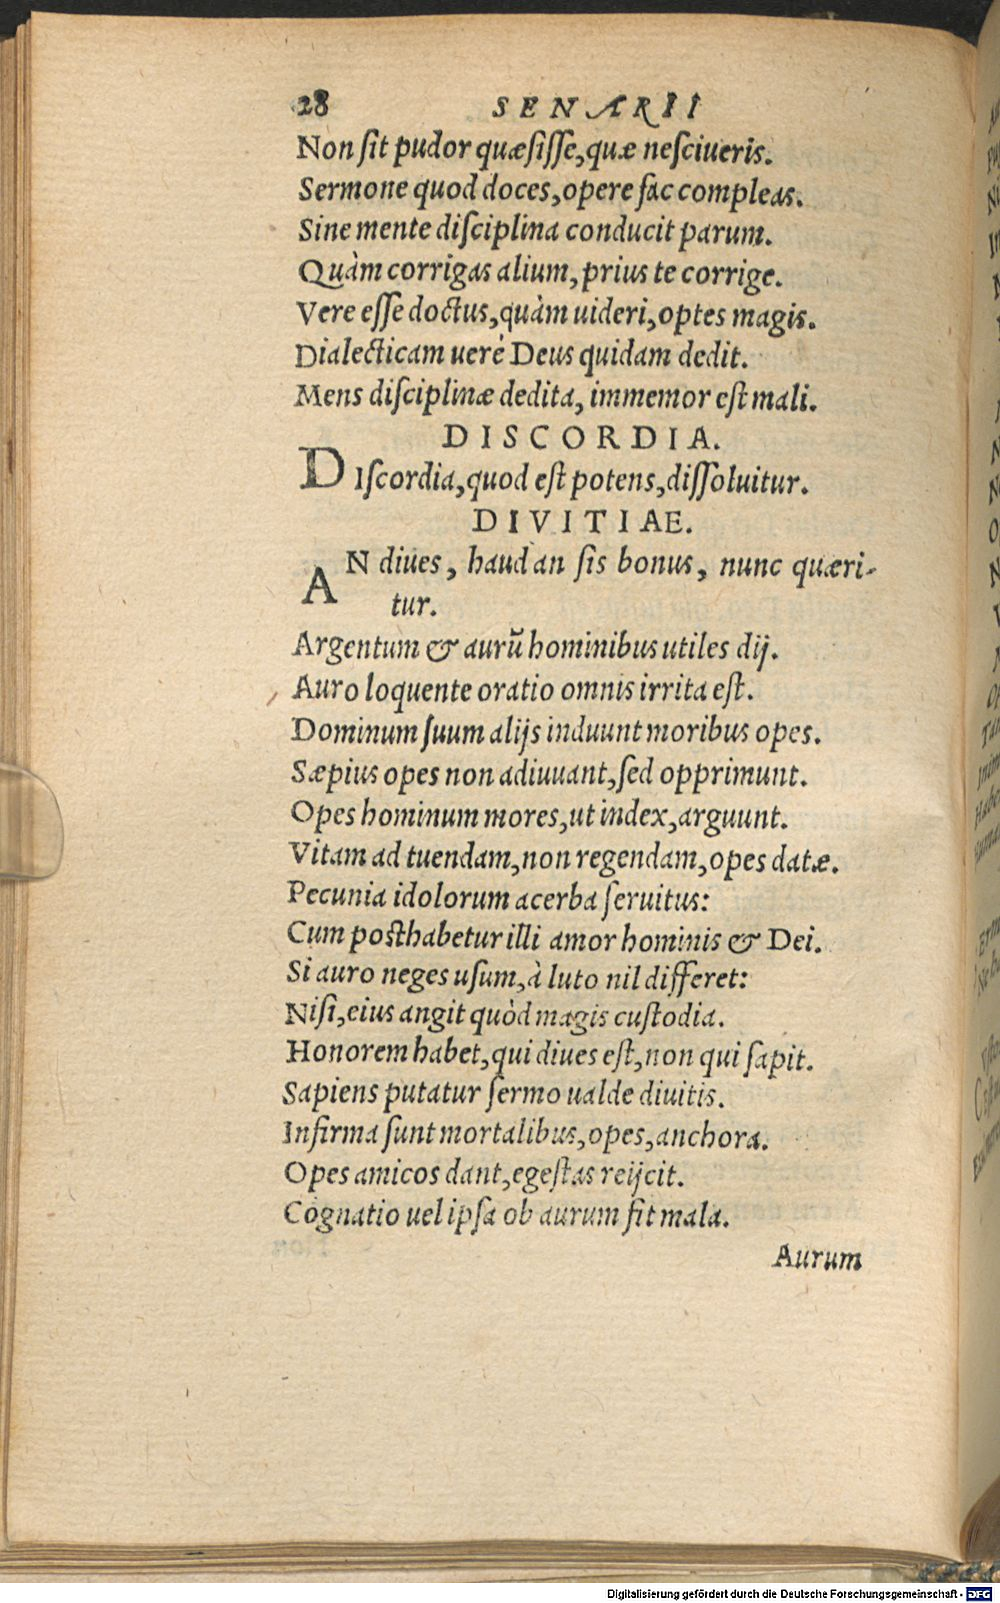 28 SENARII
Non ſit pudor quæſiſſe, quæ neſciueris.
Sermone quod doces, opere fac compleas.
Sine mente diſciplina conducit parum.
Quàm corrigas alium, prius te corrige.
Vere eſſe doctus, quàm uideri, optes magis.
Dialecticam uerè Deus quidam dedit.
Mens diſciplinæ dedita, immemor eſt mali.
DISCORDIA.
DIſcordia, quod eſt potens, diſſoluitur.
DIVITIAE.
AN diues, haud an ſis bonus, nunc quæri-
tur.
Argentum & aurũ hominibus utiles dij.
Auro loquente oratio omnis irrita eſt.
Dominum ſuum alijs induunt moribus opes.
Sæpius opes non adiuuant, ſed opprimunt.
Opes hominum mores, ut index, arguunt.
Vitam ad tuendam, non regendam, opes datæ.
Pecunia idolorum acerba ſeruitus:
Cum poſthabetur illi amor hominis & Dei.
Si auro neges uſum, à luto nil differet:
Niſi, eius angit quòd magis cuſtodia.
Honorem habet, qui diues eſt, non qui ſapit.
Sapiens putatur ſermo ualde diuitis.
Infirma ſunt mortalibus, opes, anchora.
Opes amicos dant, egeſtas reijcit.
Cognatio uel ipſa ob aurum fit mala.
Aurum
Digitalisierung gefördert durch die Deutsche Forschungsgemeinschaft - DFG